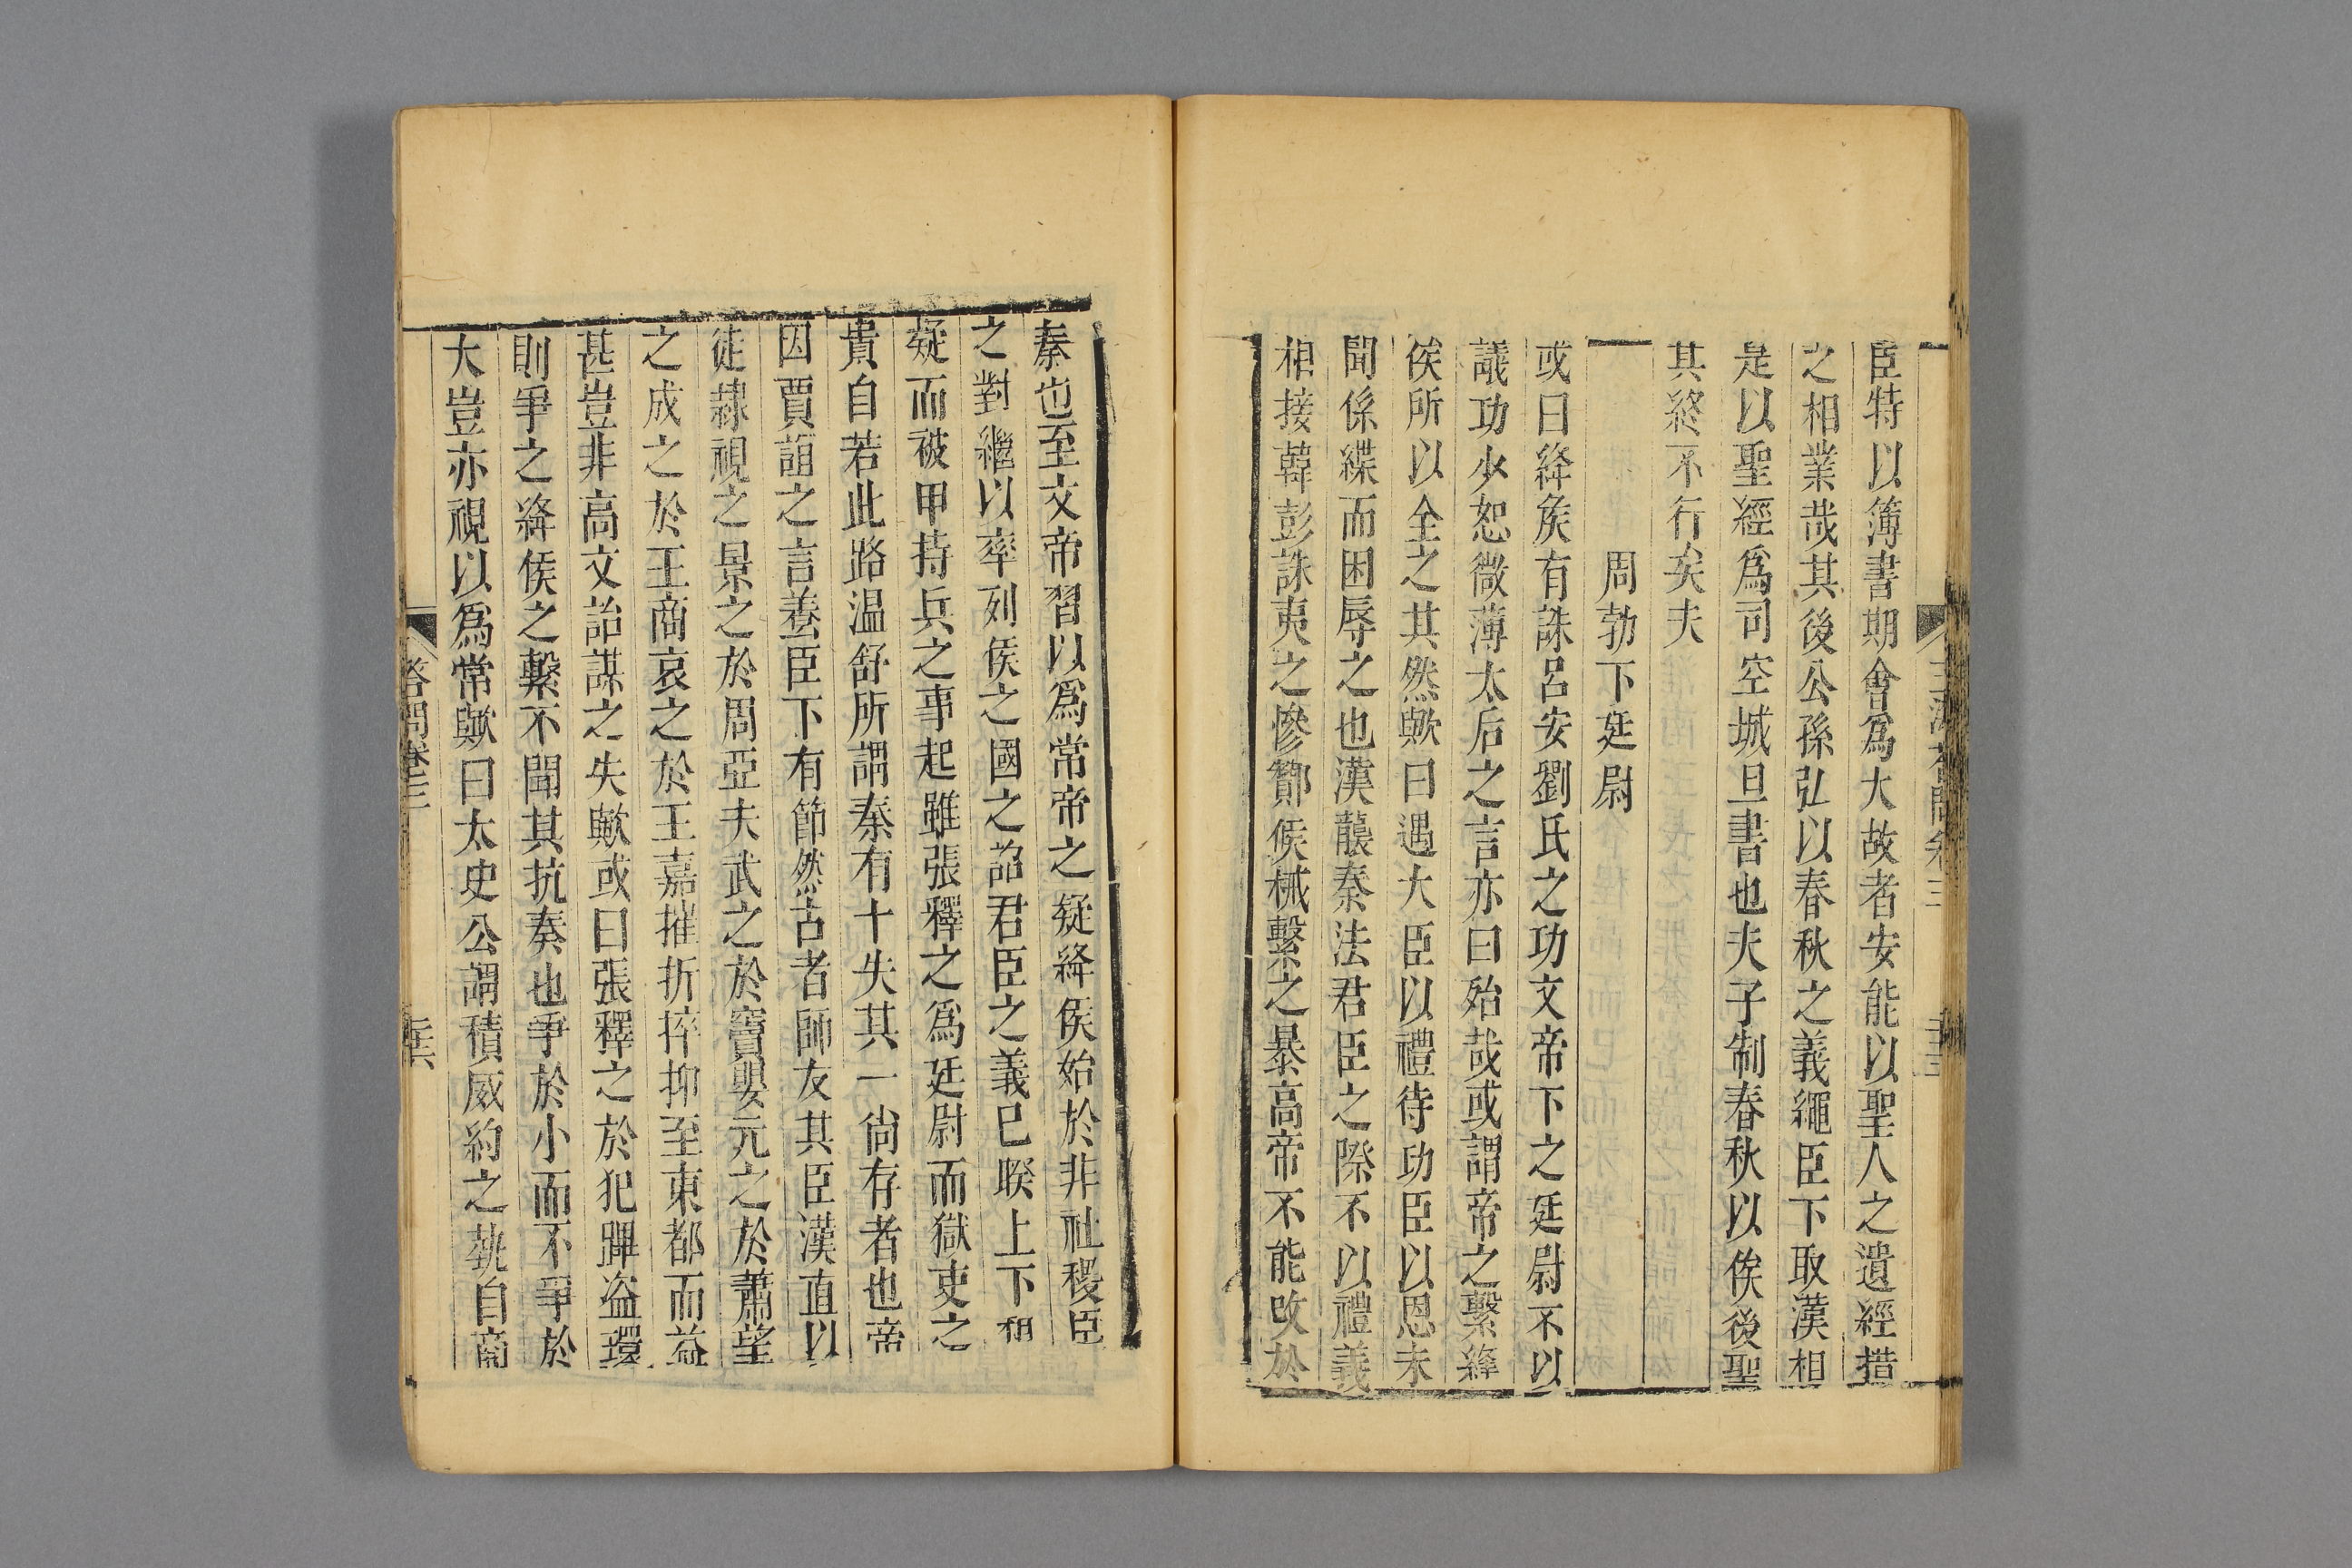 臣特以簿書期會爲大故者安能以聖人之遺經措
之相業哉其後公孫弘以春秋之義繩臣下取漢相
是以聖經爲司空城旦書也夫子制春秋以俟後聖
其終不行矣夫
周勃下廷尉
或曰絳矦有誅呂安劉氏之功文帝下之廷尉不以
議功少恕微薄太后之言亦曰殆哉或謂帝之繫絳
侯所以全之其然歟曰遇大臣以禮待功臣以恩未
聞係緤而困辱之也漢襲秦法君臣之際不以禮義
相接韓彭誅夷之慘酇侯械繫之暴高帝不能改於
秦也至文帝習以爲常帝之疑絳侯始於非社稷臣
之對繼以率列侯之國之詔君臣之義已睽上下相
疑而被甲持兵之事起雖張釋之爲廷尉而獄吏之
貴自若此路温舒所謂秦有十失其一尙存者也帝
因賈誼之言養臣下有節然古者師友其臣漢直以
徒隸視之景之於周亞夫武之於竇嬰元之於蕭望
之成之於王商哀之於王嘉摧折捽抑至東都而益
甚豈非高文詒謀之失歟或曰張釋之於犯蹕盜環
則爭之絳侯之繫不聞其抗奏也爭於小而不爭於
大豈亦視以爲常歟曰太史公謂積威約之埶自商
答問卷三